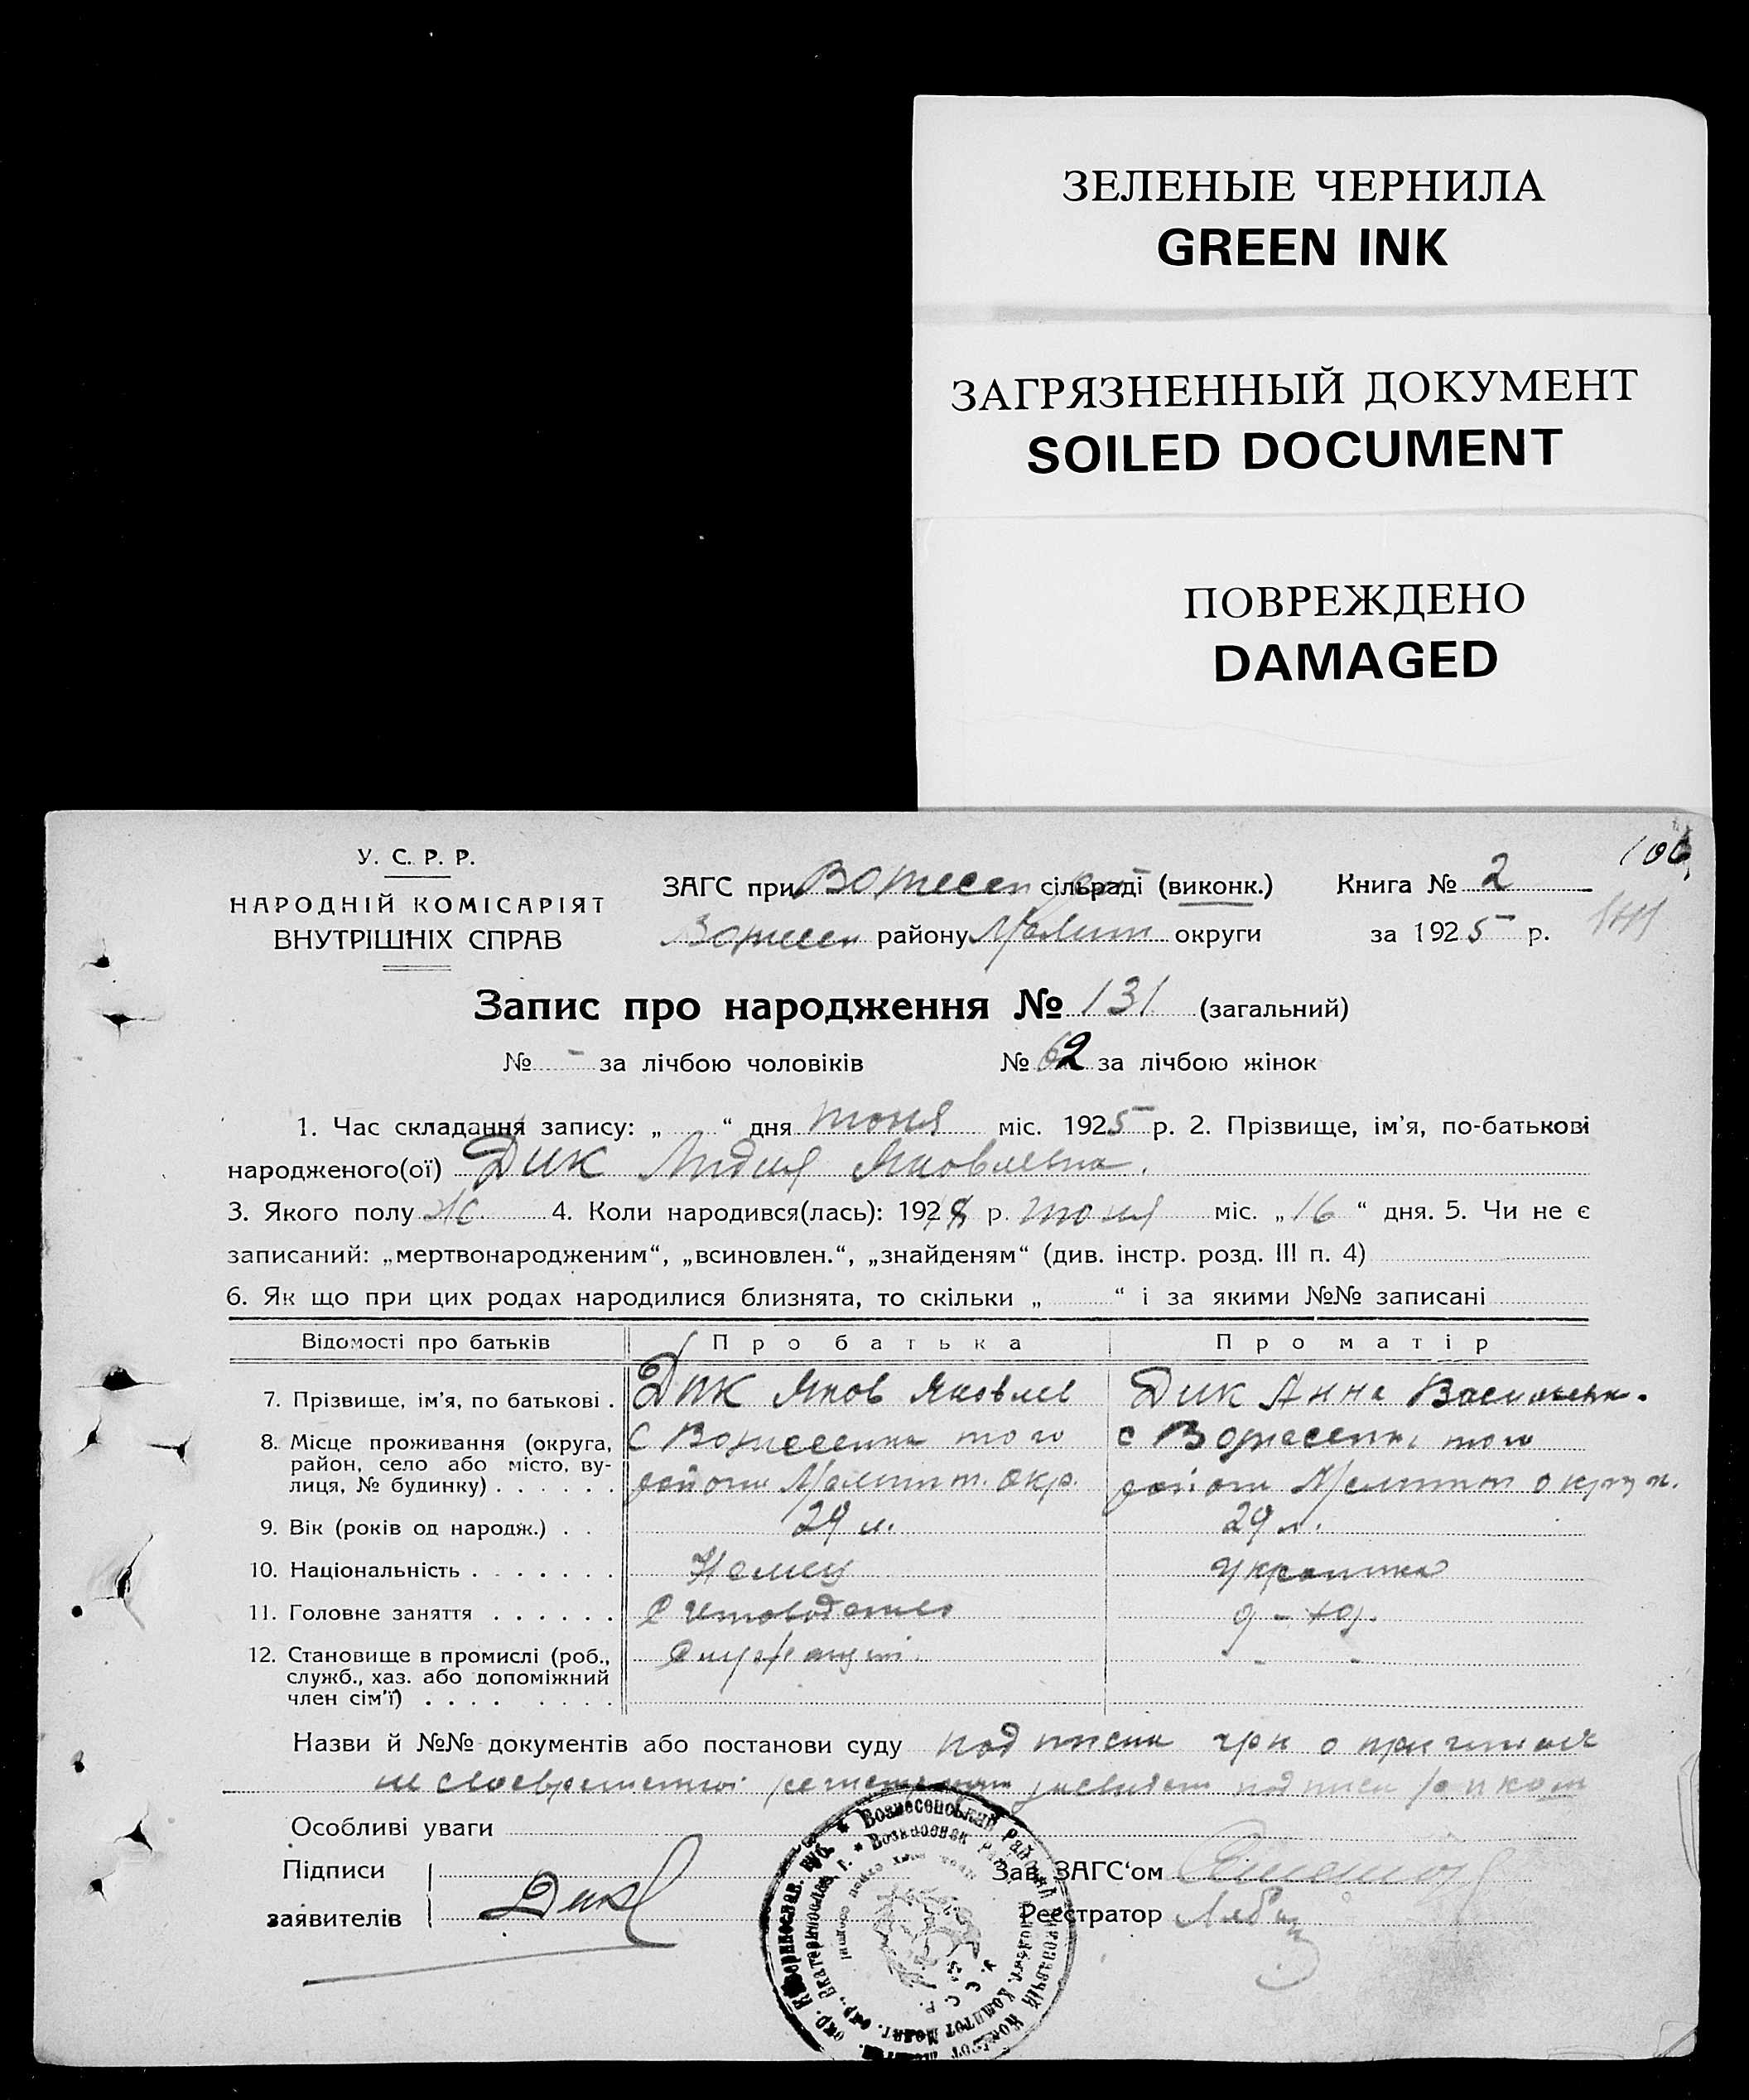 ЗЕЛЕНЫЕ ЧЕРНИЛА
GREEN INK
ЗАГРЯЗНЕННЫЙ ДОКУМЕНТ
SOILED DOCUMENT
ПОВРЕЖДЕНО
DAMAGED
106
У. С. Р. Р.
НАРОДНІЙ КОМІСАРІЯТ
ВНУТРІШНІХ СПРАВ
ЗАГС при Вознесен сільраді (виконк.) Книга № 2
Вознесен району Мелит округи за 1925 р.
Запис про народження № 131 (загальний)
№ - за лічбою чоловіків № 62 за лічбою жінок
1. Час складання запису: „ “ дня июня міс. 1925 р. 2. Прізвище, ім’я, по-батькові
народженого(ої) Дик Лидия Яковлевна.
3. Якого полу ж. 4. Коли народився(лась): 192 р. июня міс. „16“ дня. 5. Чи не є
записаний: „мертвонародженим“, „всиновлен.“, „знайденям“ (див. інстр. розд. III п. 4)
6. Як що при цих родах народилися близнята, то скільки „ “ і за якими №№ записані
Відомості про батьків Про батька Про матір
7. Прізвище, ім’я, по батькові . Дик Яков Яковлев Дик Анна Васильевн.
8. Місце проживання (округа, С Вознесенка того с Вознесенка того
район, село або місто, ву-
лиця, № будинку) . . . . . . района Мелитт. окр. района Мелитоп округи.
9. Вік (років од народж.) . . 29 л. 29 л.
10. Національність . . . . . . . Немец украинка
11. Головне заняття . . . . . . Счетоводство д-хоз.
12. Становище в промислі (роб., Служащий - -
служб., хаз. або допоміжний
член сім’ї) . . . . . . . .
Назви й №№ документів або постанови суду подписка при о причинах
не своевременной регистрации подписи
Особливі уваги
Підписи
заявителів Дик
Зав. ЗАГС‘ом
Реєстратор
Вознесенський Районний Виконавчій Комітет